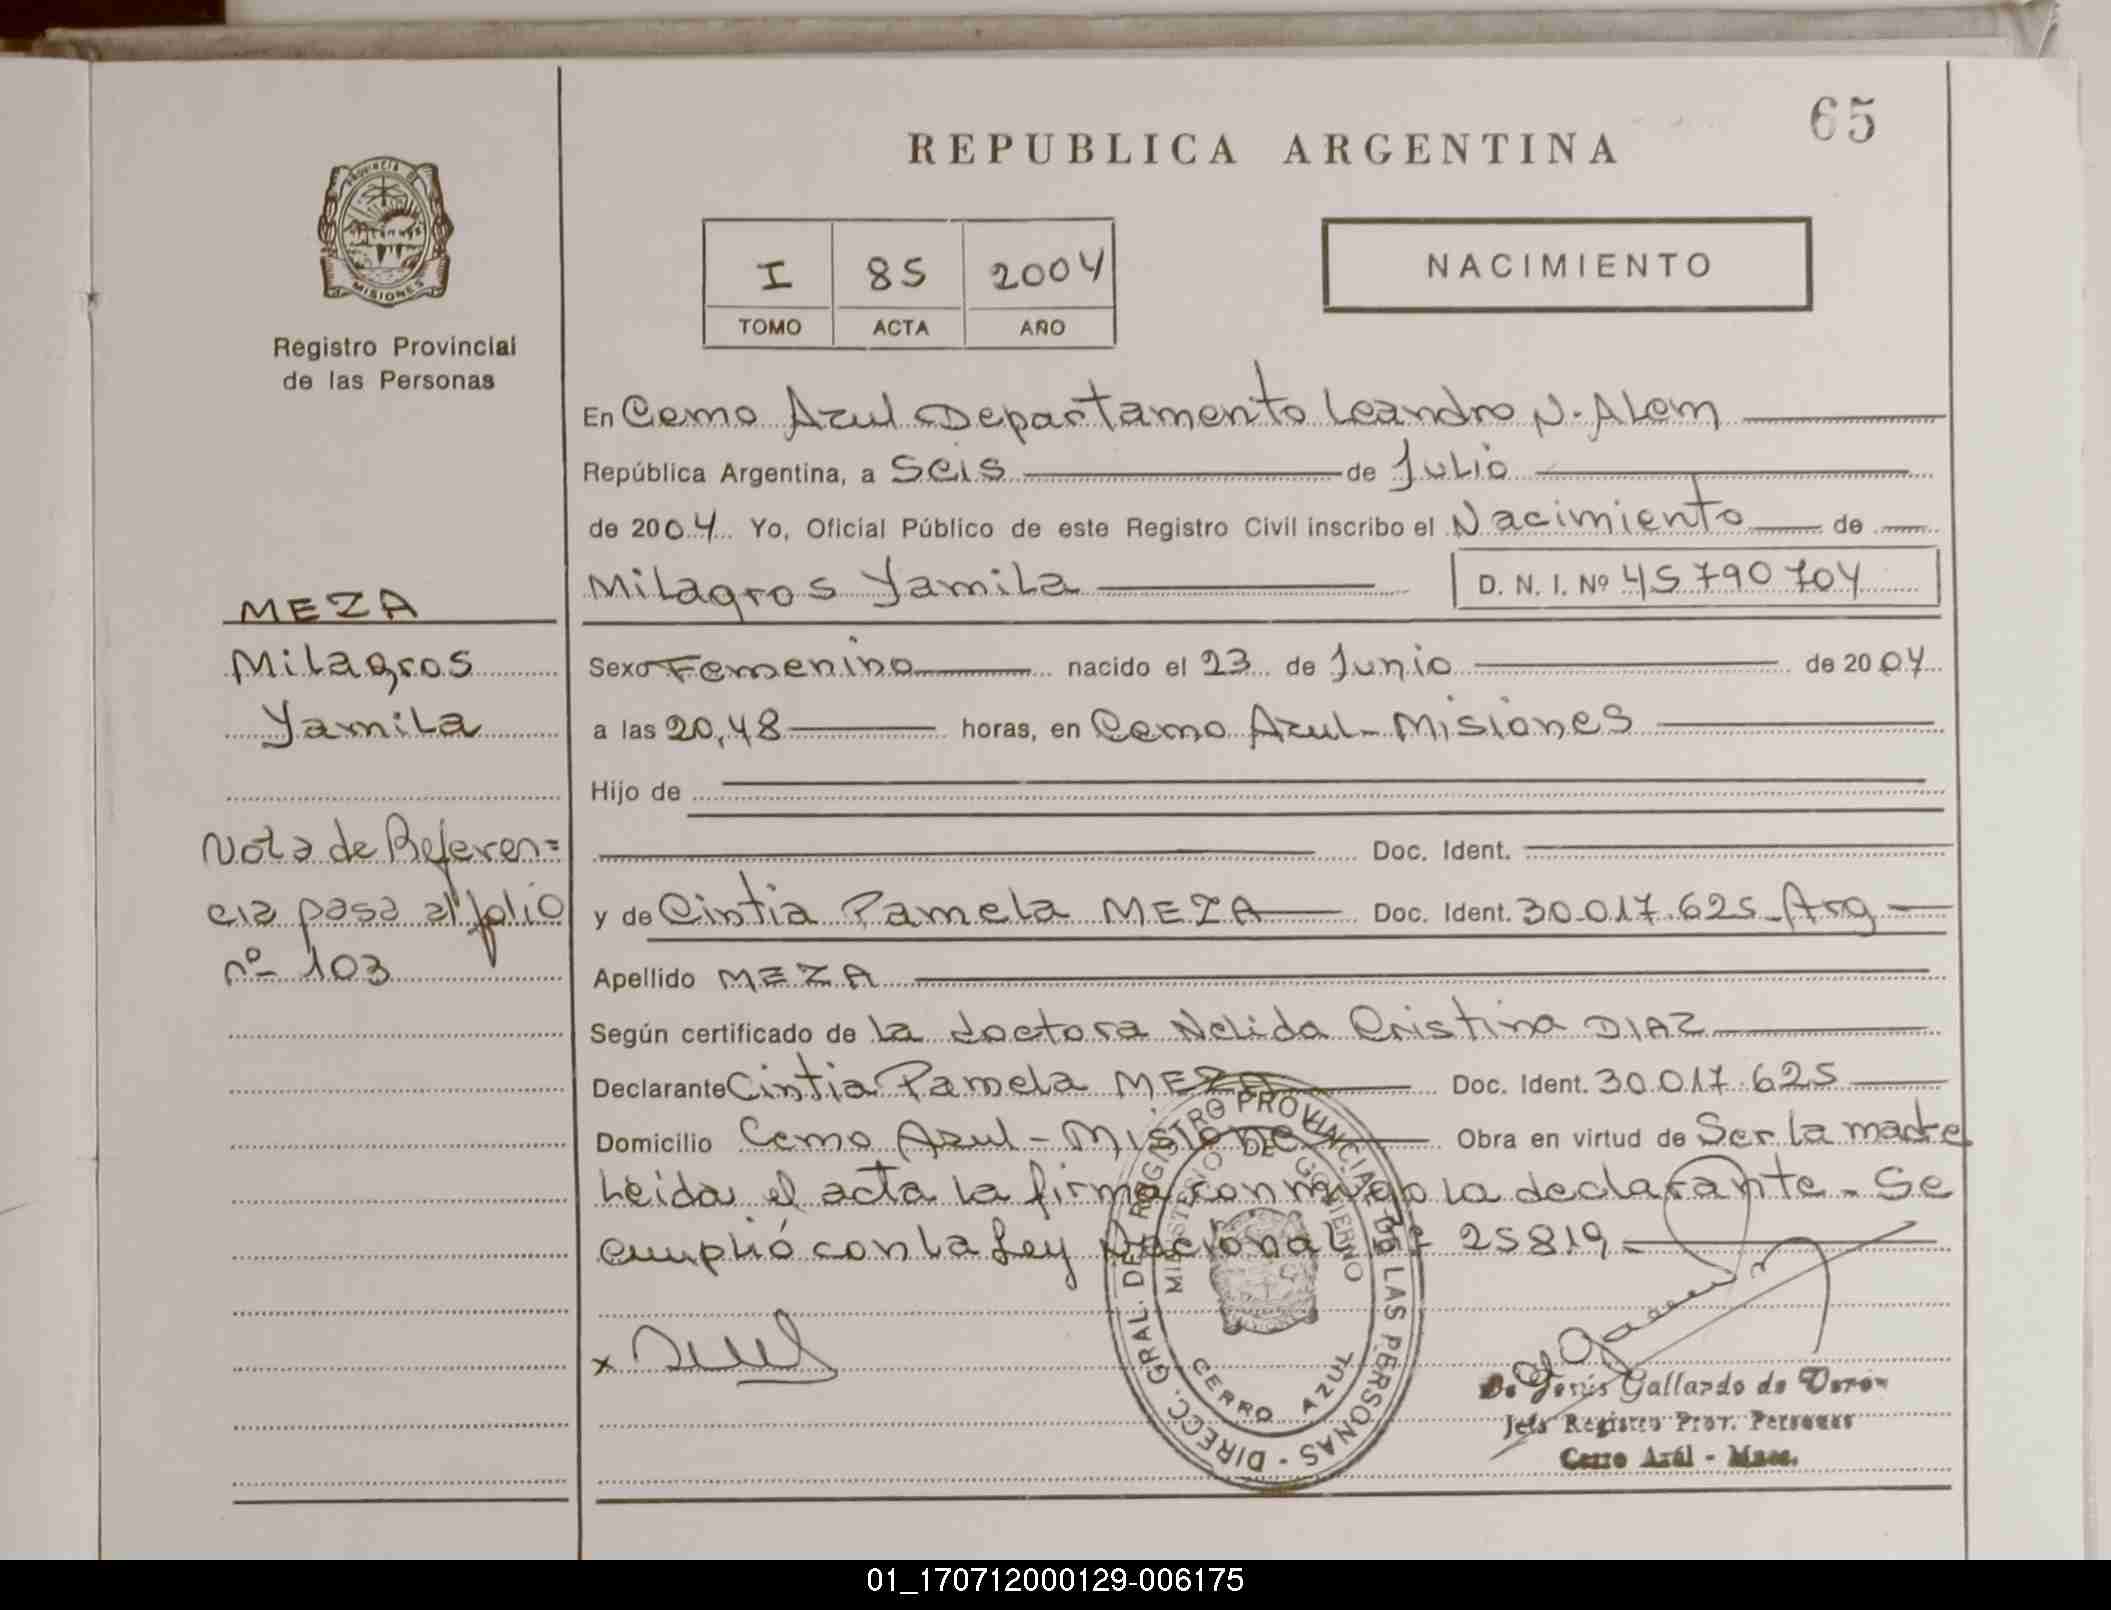 65
REPUBLICA ARGENTINA
PROVINCIA DE
MISIONES
Registro Provincial
de las Personas
I 85 2004
TOMO ACTA AÑO
NACIMIENTO
En Cerro Azul Departamento Leandro N. Alem
República Argentina, a Seis de Julio
de 2004 Yo, Oficial Público de este Registro Civil inscribo el Nacimiento de
Milagros Yamila D. N. I. Nº 45790704
MEZA
Milagros
Yamila
Sexo Femenino nacido el 23 de Junio de 2004
a las 20,48 horas, en Cerro Azul - Misiones
Hijo de
Doc. Ident.
Nota de Referen=
cia pasa al folio
nº 103
y de Cintia Pamela MEZA Doc. Ident. 30.017.625 - Arg
Apellido MEZA
Según certificado de la doctora Nelida Cristina DIAZ
Declarante Cintia Pamela MEZA Doc. Ident. 30.017.625
Domicilio Cerro Azul - Misiones Obra en virtud de Ser la madre
Leida el acta la firma conmigo la declarante - Se
cumplió con la Ley Nacional Nº 25819 -
DIRECC. GRAL. DE REGISTRO PROVINCIAL DE LAS PERSONAS
MINISTERIO DE GOBIERNO
CERRO AZUL
x
De Jesús Gallardo de Verón
Jefa Registro Prov. Personas
Cerro Azúl - Mnes.
01_170712000129-006175